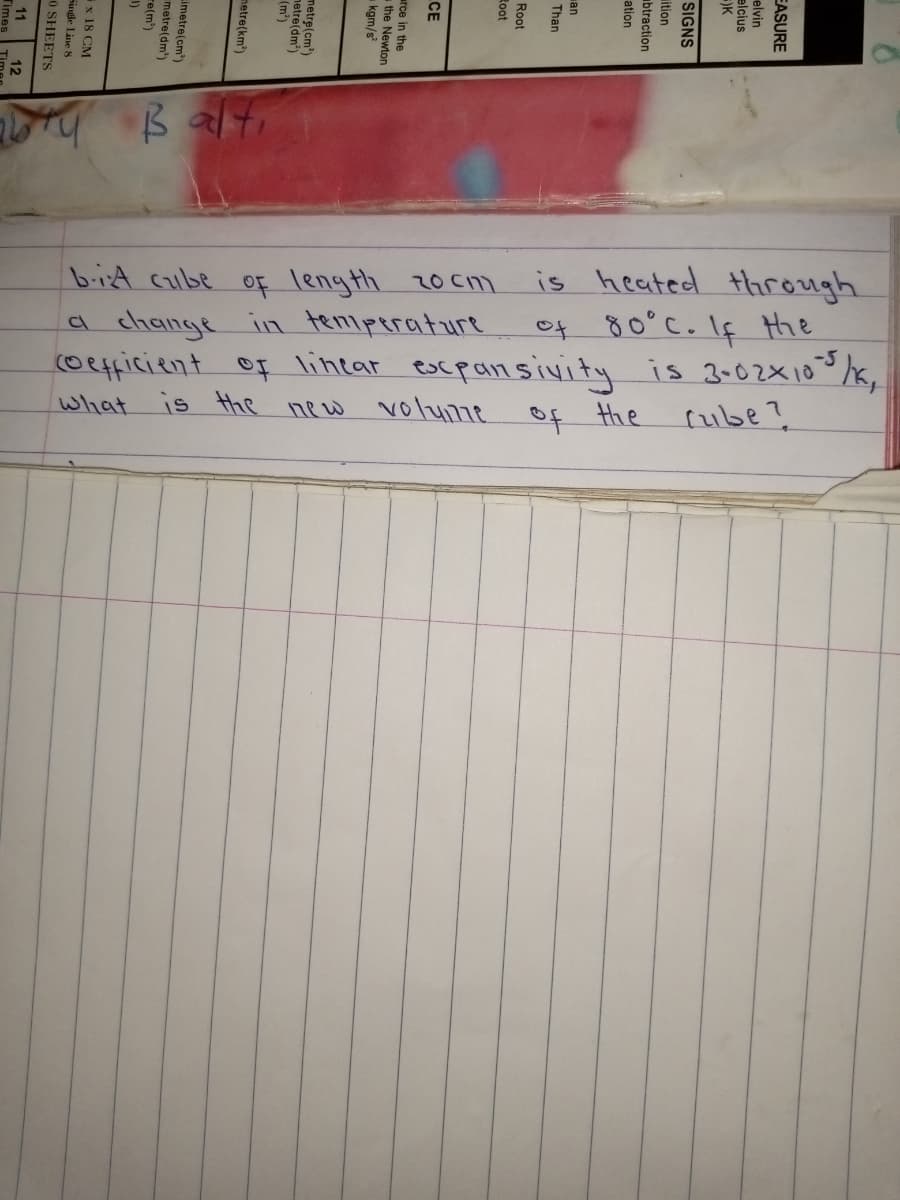 EASURE
elvin
elcius
)K
SIGNS
ition
ubtraction
ation
ian
Than
Root
Root
CE
urce in the
the Newton
kgm/s²
metre(cm³)
netre(dm³)
(m³)
netre(km²)
imetre(cm³)
metre(dm³)
re(m³)
x 18 CM
Single Line 8
0 SHEETS
11 12
Times Times
B alt.
b.iiA cube of length 20cm is heated through
a change in temperature of 80°C. If the
coefficient of linear expansivity is 3.02×10⁻⁵/K,
what is the new volume of the cube?